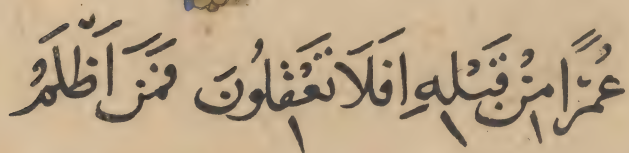 عُمُرًا مِنْ قَبْلِهِ اَفَلَا تَعْقِلُونَ فَمَنْ اَظْلَمُ